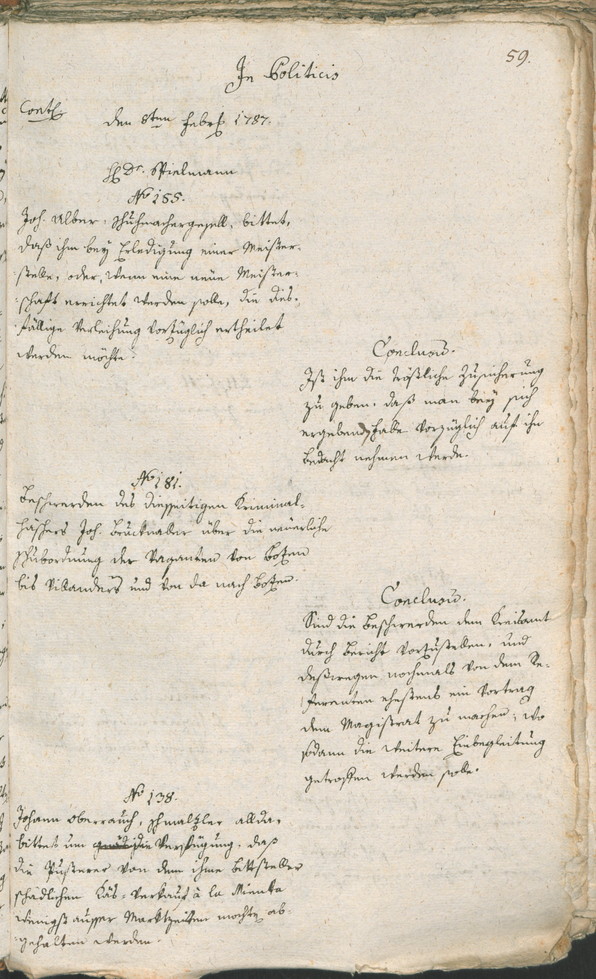 59.
In Politicis
Cont.
den 8ten Febr. 1787.
H Dr. Spielmann
No 155.
Joh. Alber, Schuhmachergesell, bittet,
daß ihm bey Erledigung einer Meister-
stelle, oder, wenn eine neue Meister-
schaft errichtet werden solle, die dies-
fällige Verleihung vorzüglich ertheilet
werden möchte.
Conclusum.
Ist ihm die tröstliche Zusicherung
zu geben, daß man bey sich
ergebendem Falle vorzüglich auf ihn
bedacht nehmen werde.
No 181.
Beschwerden des diesseitigen Kriminal-
häschers Joh. Bruckmaber über die neuerliche
Schubordnung der Vaganten von Bozen
bis Vilanders und von da nach Bozen.
Conclusum.
Sind die Beschwerden dem Kreisamt
durch Bericht vorzustellen, und
deßwegen nochmals von dem Re-
ferenten ehestens ein Vortrag
dem Magistrat zu machen; wo
sodann die weitere Einbegleitung
getroffen werden solle.
No 138.
Johann Oberrauch, Schmalzler allda,
bittet um Verfügung, daß
die Pusterer von dem ihme Bittsteller
schädlichen Käs-Verkauf à la Minuta
wenigst ausser Marktzeiten möchte ab-
gehalten werden.